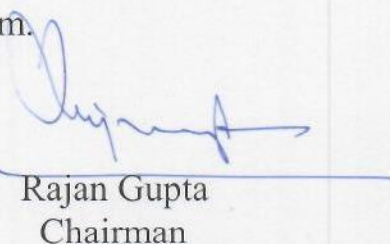 m.
Rajan Gupta
Chairman